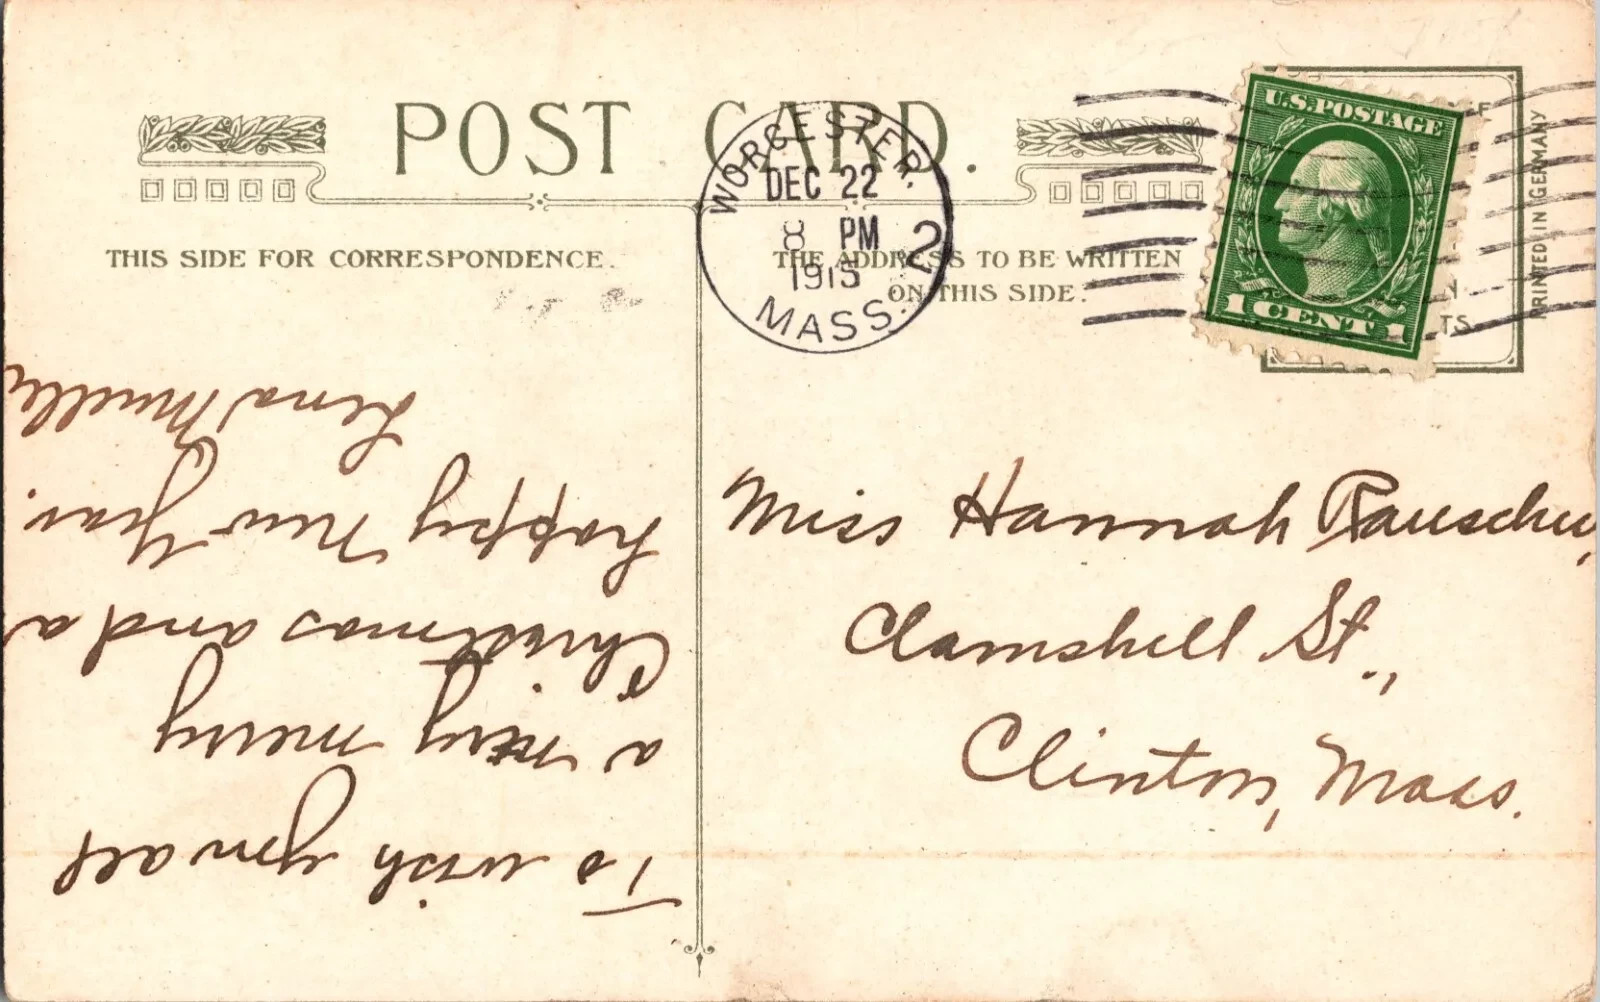 POST CARD.
THIS SIDE FOR CORRESPONDENCE.
THE ADDRESS TO BE WRITTEN
ON THIS SIDE.
WORCESTER.
DEC 22
8 PM
1913
MASS.
2
U.S. POSTAGE
1 CENT 1
TS.
PRINTED IN GERMANY
Miss Hannah Rauscher,
Clamshell St.,
Clinton, Mass.
To wish you all
a very merry
Christmas and a
happy New Year.
Lena